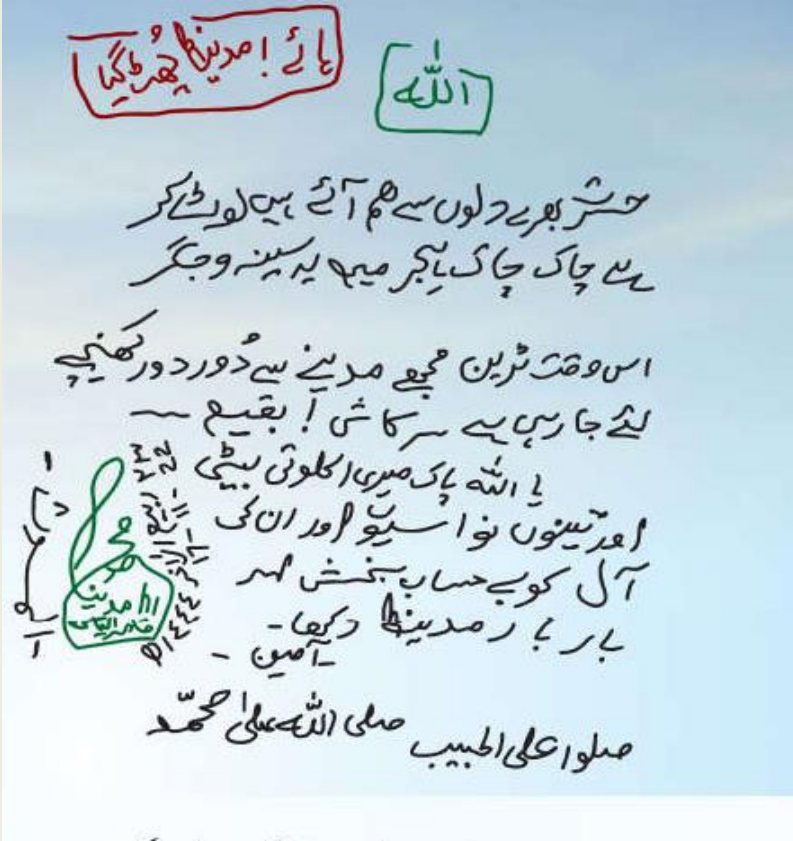 ہائے! مدینہ چُھٹ گیا
اللہ
حشر بھرے دلوں سے ہم آئے ہیں لوٹ کر
ہے چاک چاک ہجر میں یہ سینہ و جگر
اس وقت ٹرین مجھے مدینے سے دُور دور کھینچے
لئے جا رہی ہے سر کاش! بقیع
یا اللہ پاک میری اکلوتی بیٹی
اور تینوں نواسیوں اور ان کی
آل کو بے حساب بخش اور
بار بار مدینہ دکھا۔
۔آمین ۔
صلوا علی الحبیب صلی اللہ علیٰ محمّد